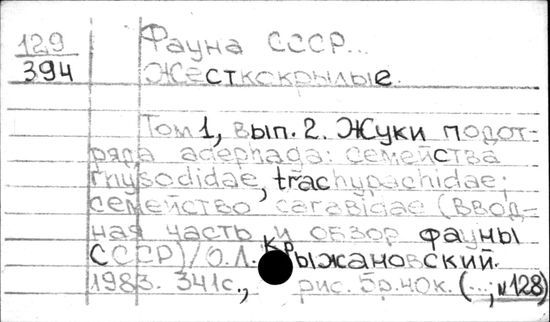 129
394
Фауна СССР...
Жесткскрылые.
Том 1, вып. 2. Жуки подот-
ряда adephaga: семейства
rhysodidae, trachypachidae;
семейство carabidae (ввод-
ная часть и обзор фауны
СССР)/О.Л. Крыжановский.
1983. 341с., рис. 5р.40к. (...; №128)